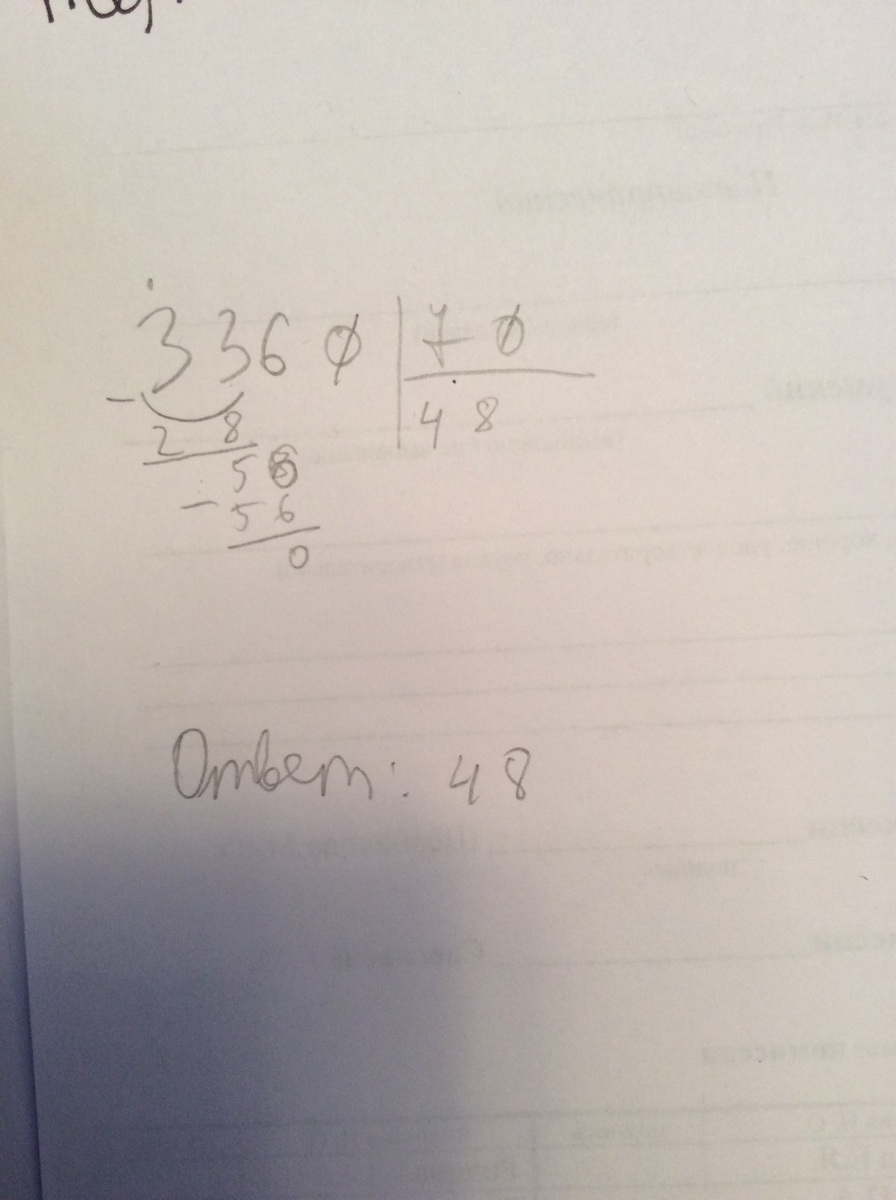 3360 | 70
- 28 | 48
56
- 56
0
Ответ: 48